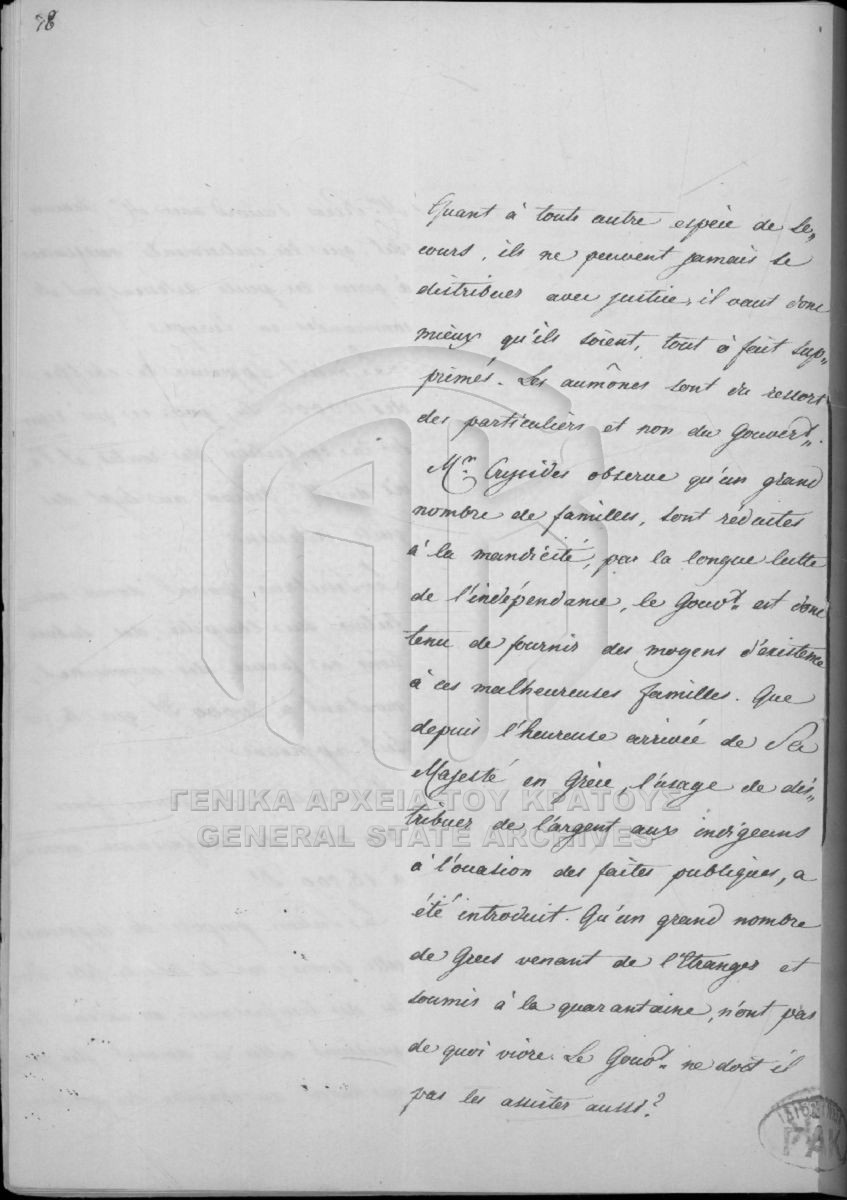 78
Quant à toute autre espèce de se„
cours, ils ne peuvent jamais se
distribuer avec justice, il vaut donc
mieux qu'ils soient, tout à fait sup„
primés. Les aumônes sont du ressort
des particuliers et non du Gouvert„.
Mr. observe qu'un grand
nombre de familles, sont réduites
à la mandicité, par la longue lutte
de l'indépendance, le Gouvt„ est donc
tenu de fournir des moyens d'existence
à ces malheureuses familles. Que
depuis l'heureuse arrivée de Sa
Majesté en Grèce, l'usage de dis„
tribuer de l'argent aux indigeans
à l'ocasion des faites publiques, a
été introduit. Qu'un grand nombre
de Grecs venant de l'Etranger et
soumis à la quarantaine, n'ont pas
de quoi vivre. Le Gouvt„ ne doit il
pas les assister aussi?
ΓΕΝΙΚΑ ΑΡΧΕΙΑ ΤΟΥ ΚΡΑΤΟΥΣ
GENERAL STATE ARCHIVES